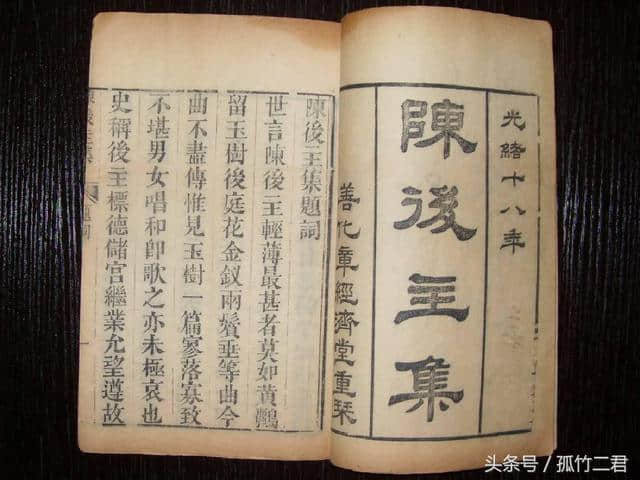 光緒十八年
陳後主集
善化章經濟堂重槧
陳後主集題詞
世言陳後主輕薄最甚者莫如黃鸝
留玉樹後庭花金釵兩鬢垂等曲今
曲不盡傳惟見玉樹一篇寥落寡致
不堪男女唱和即歌之亦未極哀也
史稱後主標德儲宮繼業允望遵故
头条号／孤竹二君